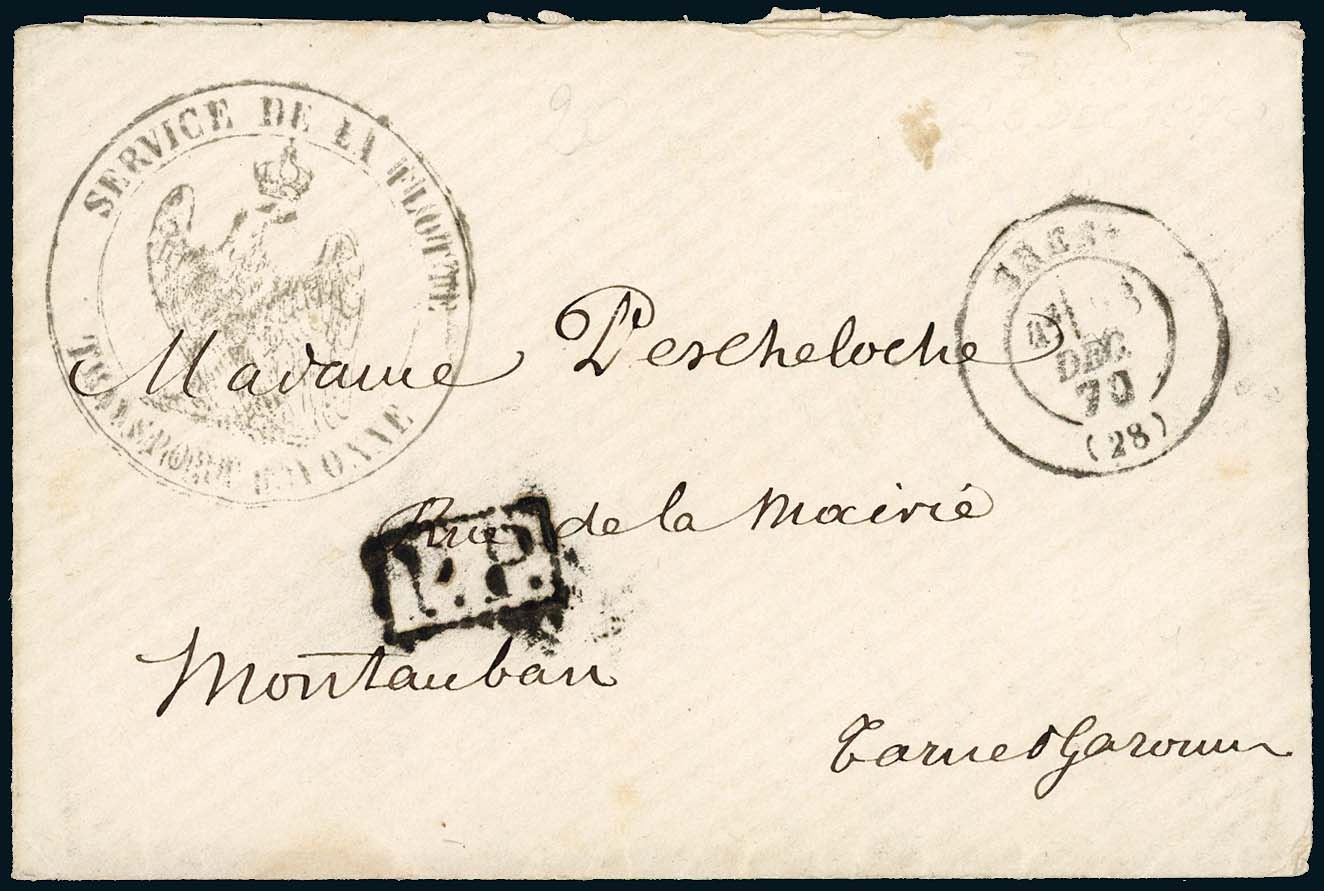 SERVICE DE LA FLOTTE
TRANSPORT L'YONNE
BREST
23
DEC.
70
(28)
Madame Pescheloche
Rue de la Mairie
P.P.
Montauban
Tarn et Garonne